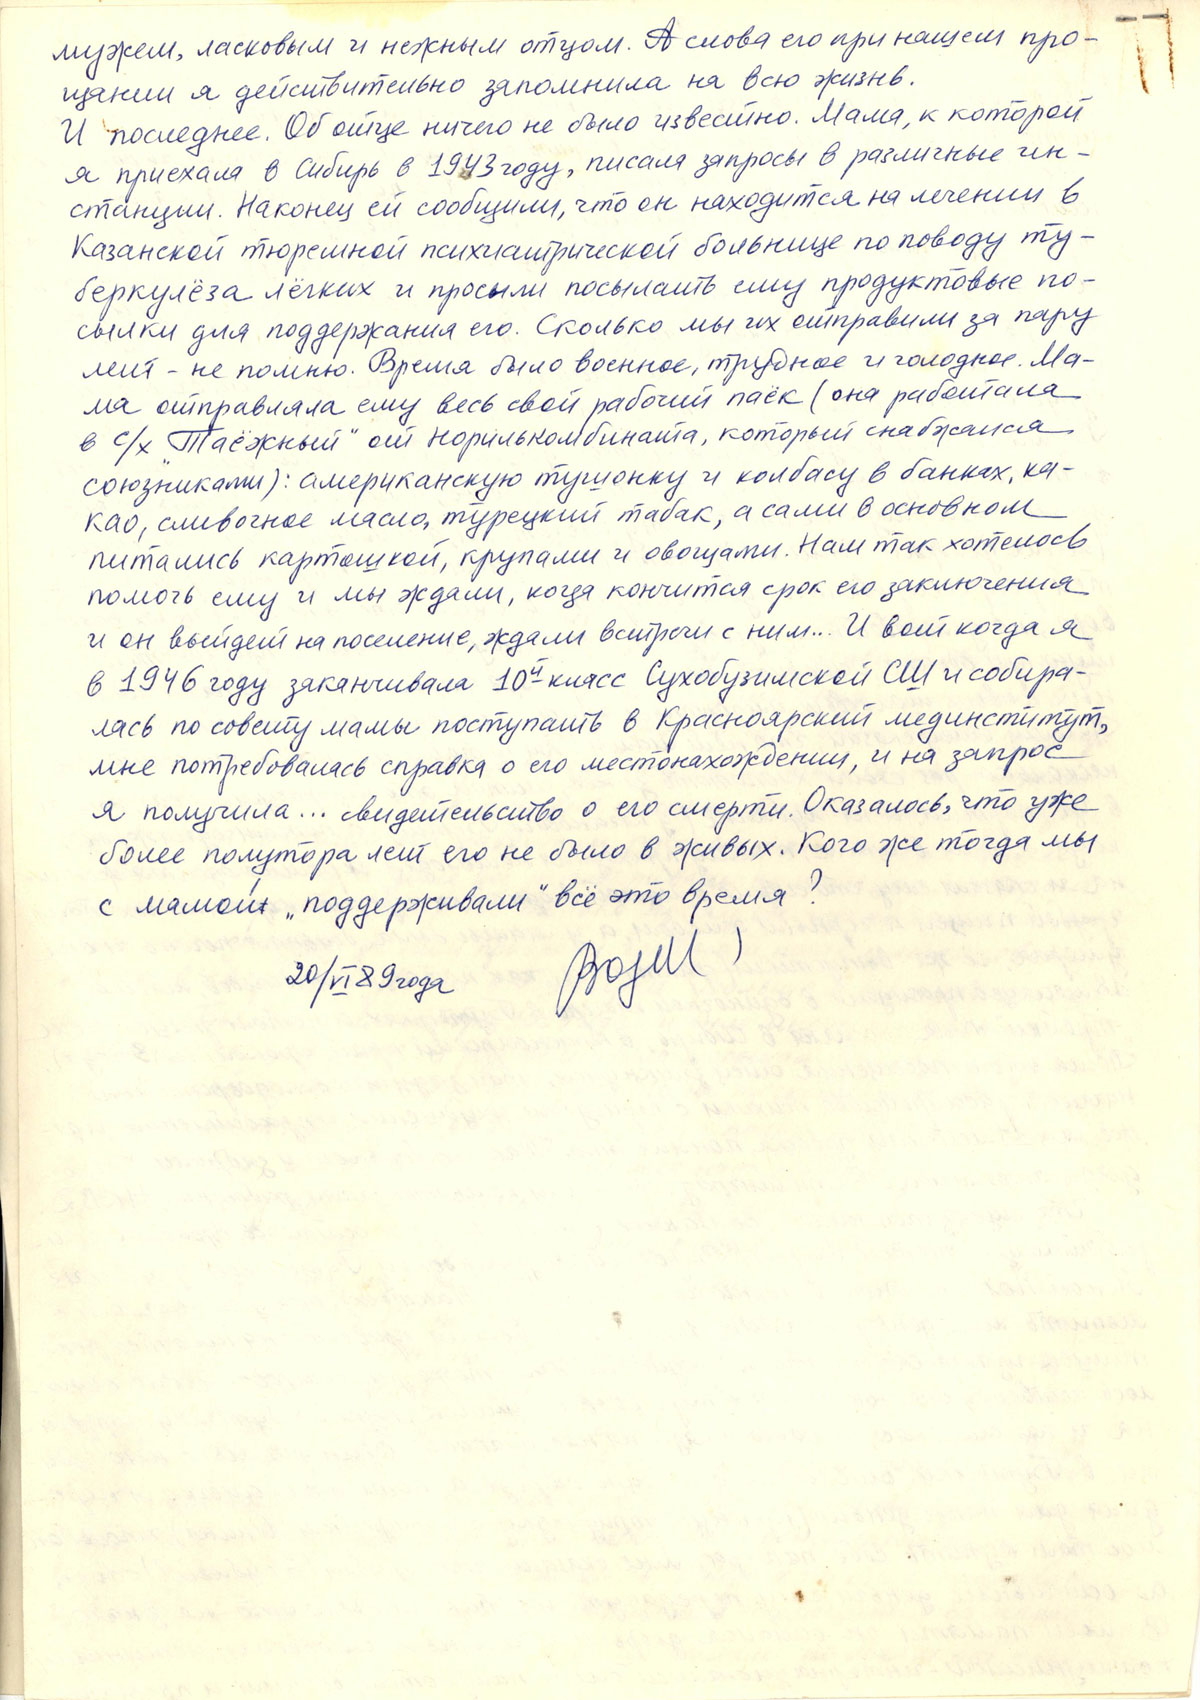 мужем, ласковым и нежным отцом. А слова его при нашем про-
щании я действительно запомнила на всю жизнь.
И последнее. Об отце ничего не было известно. Мама, к которой
я приехала в Сибирь в 1943 году, писала запросы в различные ин-
станции. Наконец ей сообщили, что он находится на лечении в
Казанской тюремной психиатрической больнице по поводу ту-
беркулёза лёгких и просили посылать ему продуктовые по-
сылки для поддержания его. Сколько мы их отправили за пару
лет - не помню. Время было военное, трудное и голодное. Ма-
ма отправляла ему весь свой рабочий паёк (она работала
в с/х „Таёжный“ от Норилькомбината, который снабжался
союзниками): американскую тушонку и колбасу в банках, ка-
као, сливочное масло, турецкий табак, а сами в основном
питались картошкой, крупами и овощами. Нам так хотелось
помочь ему и мы ждали, когда кончится срок его заключения
и он выйдет на поселение, ждали встречи с ним... И вот когда я
в 1946 году заканчивала 10й класс Сухобузимской СШ и собира-
лась по совету мамы поступать в Красноярский мединститут,
мне потребовалась справка о его местонахождении, и на запрос
я получила... свидетельство о его смерти. Оказалось, что уже
более полутора лет его не было в живых. Кого же тогда мы
с мамой „поддерживали“ всё это время?
20/VI 89 года